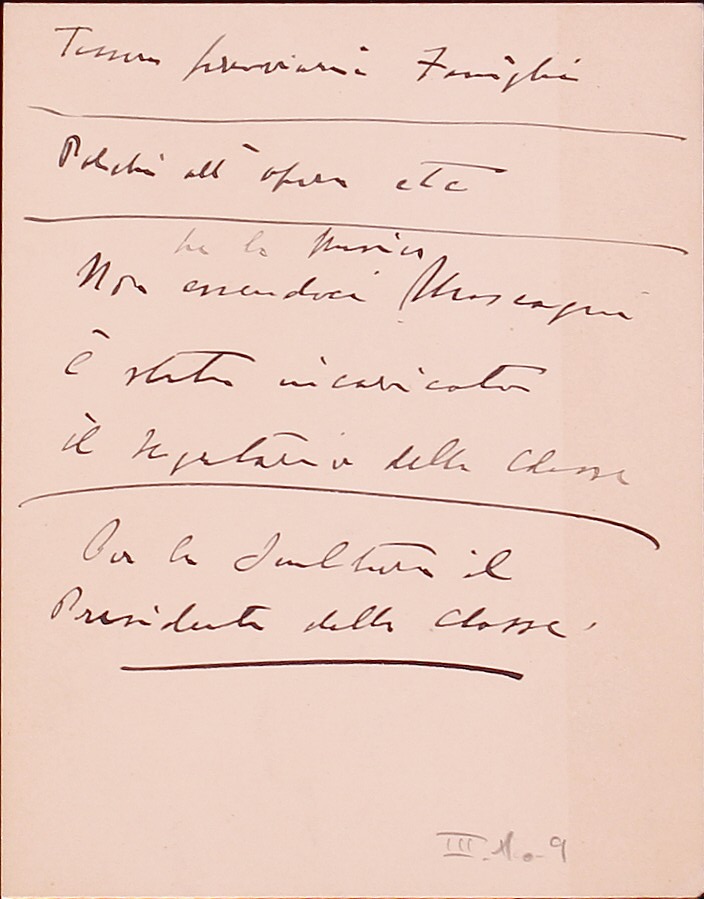 Tessera ferroviaria Famiglia
Palchi all'opera etc
per la Musica
Non essendoci Mascagni
è stato incaricato
il segretario della Classe
Per la Scultura il
Presidente della Classe.
III. 9